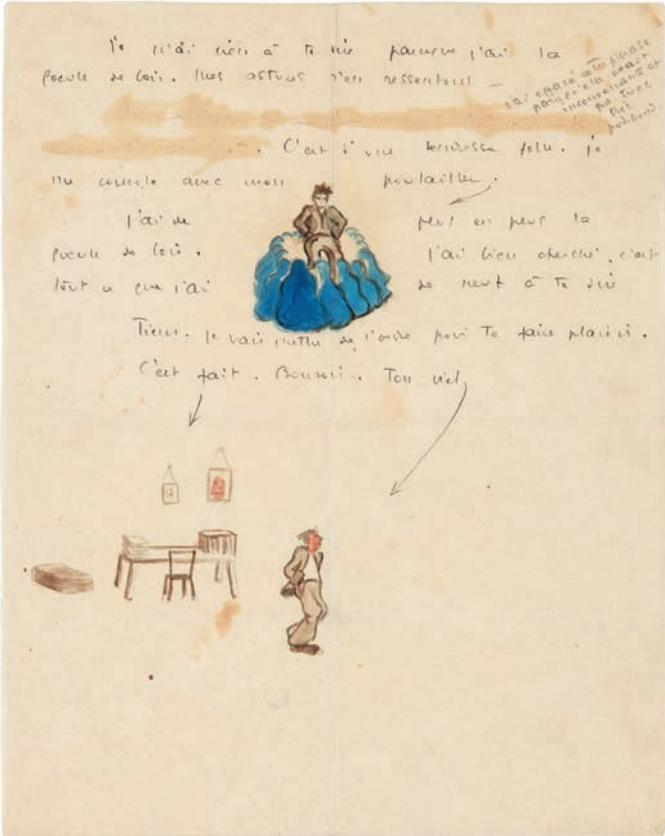 Je n'ai rien à te dire parceque j'ai la
gueule de bois. Mes astuces s'en ressentent —
j'ai effacé cette phrase
parce qu'elle était
inconvenante et
très
pudibond
. C'est d'une tendresse folle. Je
me console avec mon poulailler.
J'ai de plus en plus la
gueule de bois. J'ai bien cherché, c'est
tout ce que j'ai de neuf à te dire
Tiens. Je vais mettre de l'ordre pour te faire plaisir.
C'est fait. Bonsoir. Ton viel